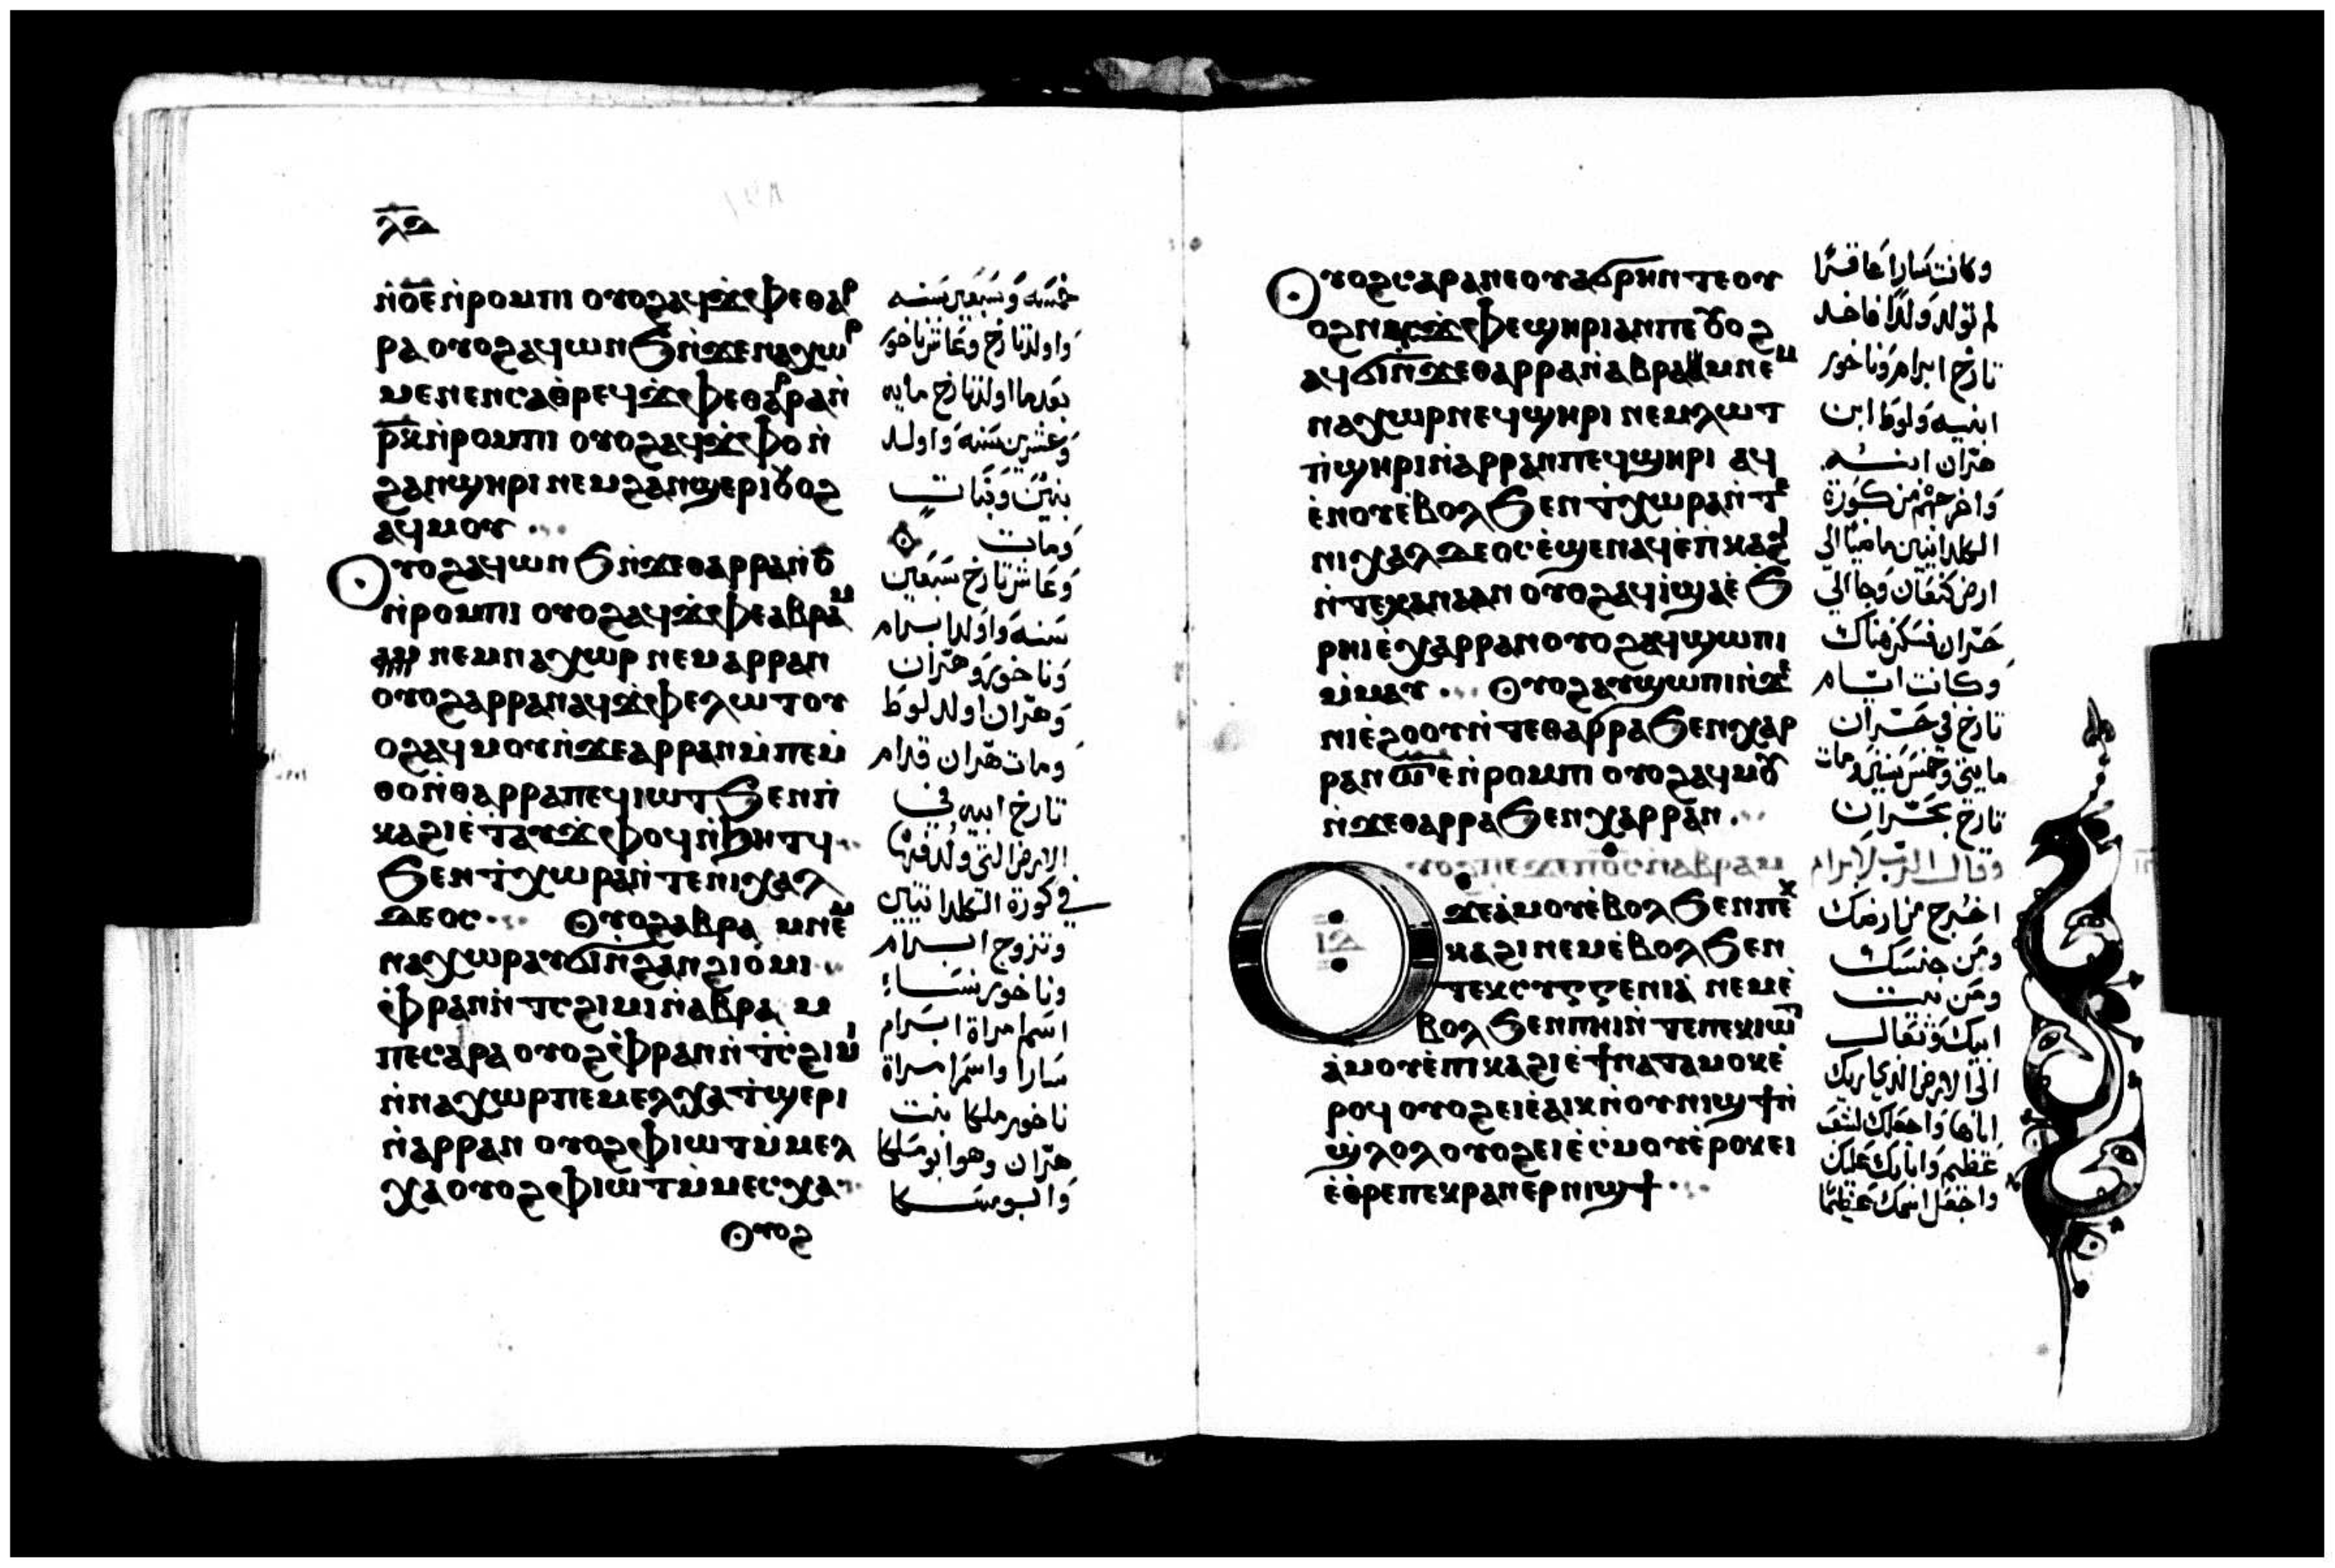 ⲗⲇ
ⲛ̀ⲟ̅ⲉ̅ ⲛ̀ⲣⲟⲙⲡⲓ ⲟⲩⲟϩ ⲁϥϫ̀ⲫⲉ ⲑⲁⲣ
ⲣⲁ ⲟⲩⲟϩ ⲁϥⲱⲛϧ ⲛ̀ϫⲉ ⲛⲁⲭⲱⲣ
ⲙⲉⲛⲉⲛⲥⲁ ⲑ̀ⲣⲉϥϫ̀ⲫⲉ ⲑⲁⲣⲣⲁ ⲛ̀
ⲣ̅ⲕ̅ ⲛ̀ⲣⲟⲙⲡⲓ ⲟⲩⲟϩ ⲁϥϫ̀ⲫⲟ ⲛ̀
ϩⲁⲛϣⲏⲣⲓ ⲛⲉⲙ ϩⲁⲛϣⲉⲣⲓ ⲟⲩⲟϩ
ⲁϥⲙⲟⲩ
Ⲟⲩⲟϩ ⲁϥⲱⲛϧ ⲛ̀ϫⲉ ⲑⲁⲣⲣⲁ ⲛ̀ⲟ̅
ⲛ̀ⲣⲟⲙⲡⲓ ⲟⲩⲟϩ ⲁϥϫ̀ⲫⲉ ⲁⲃⲣⲁⲙ
ⲛⲉⲙ ⲛⲁⲭⲱⲣ ⲛⲉⲙ ⲁⲣⲣⲁⲛ
ⲟⲩⲟϩ ⲁⲣⲣⲁⲛ ⲁϥϫ̀ⲫⲉ ⲗⲱⲧ ⲟⲩ
ⲟϩ ⲁϥⲙⲟⲩ ⲛ̀ϫⲉ ⲁⲣⲣⲁⲛ ⲙ̀ⲡⲉⲙ̀
ⲑⲟ ⲛ̀ⲑⲁⲣⲣⲁ ⲡⲉϥⲓⲱⲧ ϧⲉⲛ ⲡⲓ
ⲕⲁϩⲓ ⲉ̀ⲧⲁⲩϫ̀ⲫⲟϥ ⲛ̀ϧⲏⲧϥ
ϧⲉⲛ ϯⲭⲱⲣⲁ ⲛ̀ⲧⲉ ⲛⲓⲭⲁⲗ
ⲇⲉⲟⲥ Ⲟⲩⲟϩ ⲁⲃⲣⲁⲙ ⲛⲉⲙ
ⲛⲁⲭⲱⲣ ⲁⲩϭⲓ ⲛ̀ϩⲁⲛϩⲓⲟ̀ⲙⲓ
ⲫ̀ⲣⲁⲛ ⲛ̀ⲧⲥϩⲓⲙⲓ ⲛ̀ⲁⲃⲣⲁⲙ
ⲡⲉ ⲥⲁⲣⲁ ⲟⲩⲟϩ ⲫ̀ⲣⲁⲛ ⲛ̀ⲧ̀ⲥϩⲓⲙⲓ
ⲛ̀ⲛⲁⲭⲱⲣ ⲡⲉ ⲙⲉⲗⲭⲁ ⲧ̀ϣⲉⲣⲓ
ⲛ̀ⲁⲣⲣⲁⲛ ⲟⲩⲟϩ ⲫ̀ⲓⲱⲧ ⲙ̀ⲙⲉⲗ
ⲭⲁ ⲟⲩⲟϩ ⲫ̀ⲓⲱⲧ ⲙ̀ⲙⲉⲥⲭⲁ
Ⲟⲩⲟϩ
خمسه وسبعين سنه
واولد تارخ وعاش ناخور
بعدما اولد تارخ مايه
وعشرين سنه واولد
بنين وبنات
ومات
وعاش تارخ سبعين
سنه واولد ابرام
وناخور وهران
وهران اولد لوط
ومات هران قدام
تارخ ابيه في
الارض التي ولد فيها
في كورة الكلدانيين
وتزوج ابرام
وناخور نساء
اسم امراة ابرام
سارا واسم امراة
ناخور ملكا بنت
هران وهو ابو ملكا
وابو سكا
Ⲟⲩⲟϩ ⲥⲁⲣⲁ ⲛⲉ ⲟⲩⲁϭⲣⲏⲛ ⲧⲉ ⲟⲩ
ⲟϩ ⲛⲁⲥϫ̀ⲫⲉ ϣⲏⲣⲓ ⲁⲛ ⲡⲉ ⲟⲩⲟϩ
ⲁϥϭⲓ ⲛ̀ϫⲉ ⲑⲁⲣⲣⲁ ⲛ̀ⲁⲃⲣⲁⲙ ⲛⲉⲙ
ⲛⲁⲭⲱⲣ ⲛⲉϥϣⲏⲣⲓ ⲛⲉⲙ ⲗⲱⲧ
ⲡ̀ϣⲏⲣⲓ ⲛ̀ⲁⲣⲣⲁⲛ ⲡⲉϥϣⲏⲣⲓ ⲁϥ
ⲉ̀ⲛⲟⲩ ⲉ̀ⲃⲟⲗ ϧⲉⲛ ϯⲭⲱⲣⲁ ⲛ̀ⲧⲉ
ⲛⲓⲭⲁⲗⲇⲉⲟⲥ ⲉ̀ϣⲉⲛⲁϥ ⲉ̀ⲡ̀ⲕⲁϩⲓ
ⲛ̀ⲧⲉ ⲭⲁⲛⲁⲁⲛ ⲟⲩⲟϩ ⲁϥⲓ̀ ϣⲁ ⲉ̀ϧ
ⲣⲏⲓ ⲉ̀ⲭⲁⲣⲣⲁⲛ ⲟⲩⲟϩ ⲁϥϣⲱⲡⲓ
ⲙ̀ⲙⲁⲩ Ⲟⲩⲟϩ ⲁⲩϣⲱⲡⲓ ⲛ̀ϫⲉ
ⲛⲓⲉ̀ϩⲟⲟⲩ ⲛ̀ⲧⲉ ⲑⲁⲣⲣⲁ ϧⲉⲛ ⲭⲁⲣ
ⲣⲁⲛ ⲥ̅ⲉ̅ ⲛ̀ⲣⲟⲙⲡⲓ ⲟⲩⲟϩ ⲁϥⲙⲟⲩ
ⲛ̀ϫⲉ ⲑⲁⲣⲣⲁ ϧⲉⲛ ⲭⲁⲣⲣⲁⲛ
Ⲟⲩⲟϩ ⲡⲉϫⲉ ⲡ̅ⲟ̅ⲥ̅ ⲛ̀ⲁⲃⲣⲁⲙ
ϫⲉ ⲁ̀ⲙⲟⲩ ⲉ̀ⲃⲟⲗ ϧⲉⲛ ⲡⲉⲕ
ⲕⲁϩⲓ ⲛⲉⲙ ⲉ̀ⲃⲟⲗ ϧⲉⲛ
ⲧⲉⲕⲥⲩⲅⲅⲉⲛⲓⲁ̀ ⲛⲉⲙ ⲉ̀
ⲃⲟⲗ ϧⲉⲛ ⲡⲏⲓ ⲛ̀ⲧⲉ ⲡⲉⲕⲓⲱⲧ
ⲁ̀ⲙⲟⲩ ⲉ̀ⲡⲓⲕⲁϩⲓ ⲉ̀ϯⲛⲁⲧⲁⲙⲟⲕ ⲉ̀
ⲣⲟϥ ⲟⲩⲟϩ ⲉⲓⲉ̀ⲁⲓⲕ ⲛ̀ⲟⲩⲛⲓϣϯ ⲛ̀
ϣ̀ⲗⲟⲗ ⲟⲩⲟϩ ⲉⲓⲉ̀ⲥ̀ⲙⲟⲩ ⲉ̀ⲣⲟⲕ ⲉⲓ
ⲉ̀ⲑ̀ⲣⲉ ⲡⲉⲕⲣⲁⲛ ⲉⲣⲛⲓϣϯ
وكانت سارا عاقرا
لم تولد ولدا فاخد
تارخ ابرام وناخور
ابنيه ولوط ابن
هران ابنه
واخرجهم من كورة
الكلدانيين ماضيا الي
ارض كنعان وجا الي
حران فسكن هناك
وكانت ايام
تارخ في حران
مايتي وخمس سنين ومات
تارخ بحران
وقال الرب لابرام
اخرج من ارضك
ومن جنسك
ومن بيت
ابيك وتعال
الي الارض الذي اريك
اياها واجعلك لشعب
عظيم وابارك عليك
واجعل اسمك عظيما